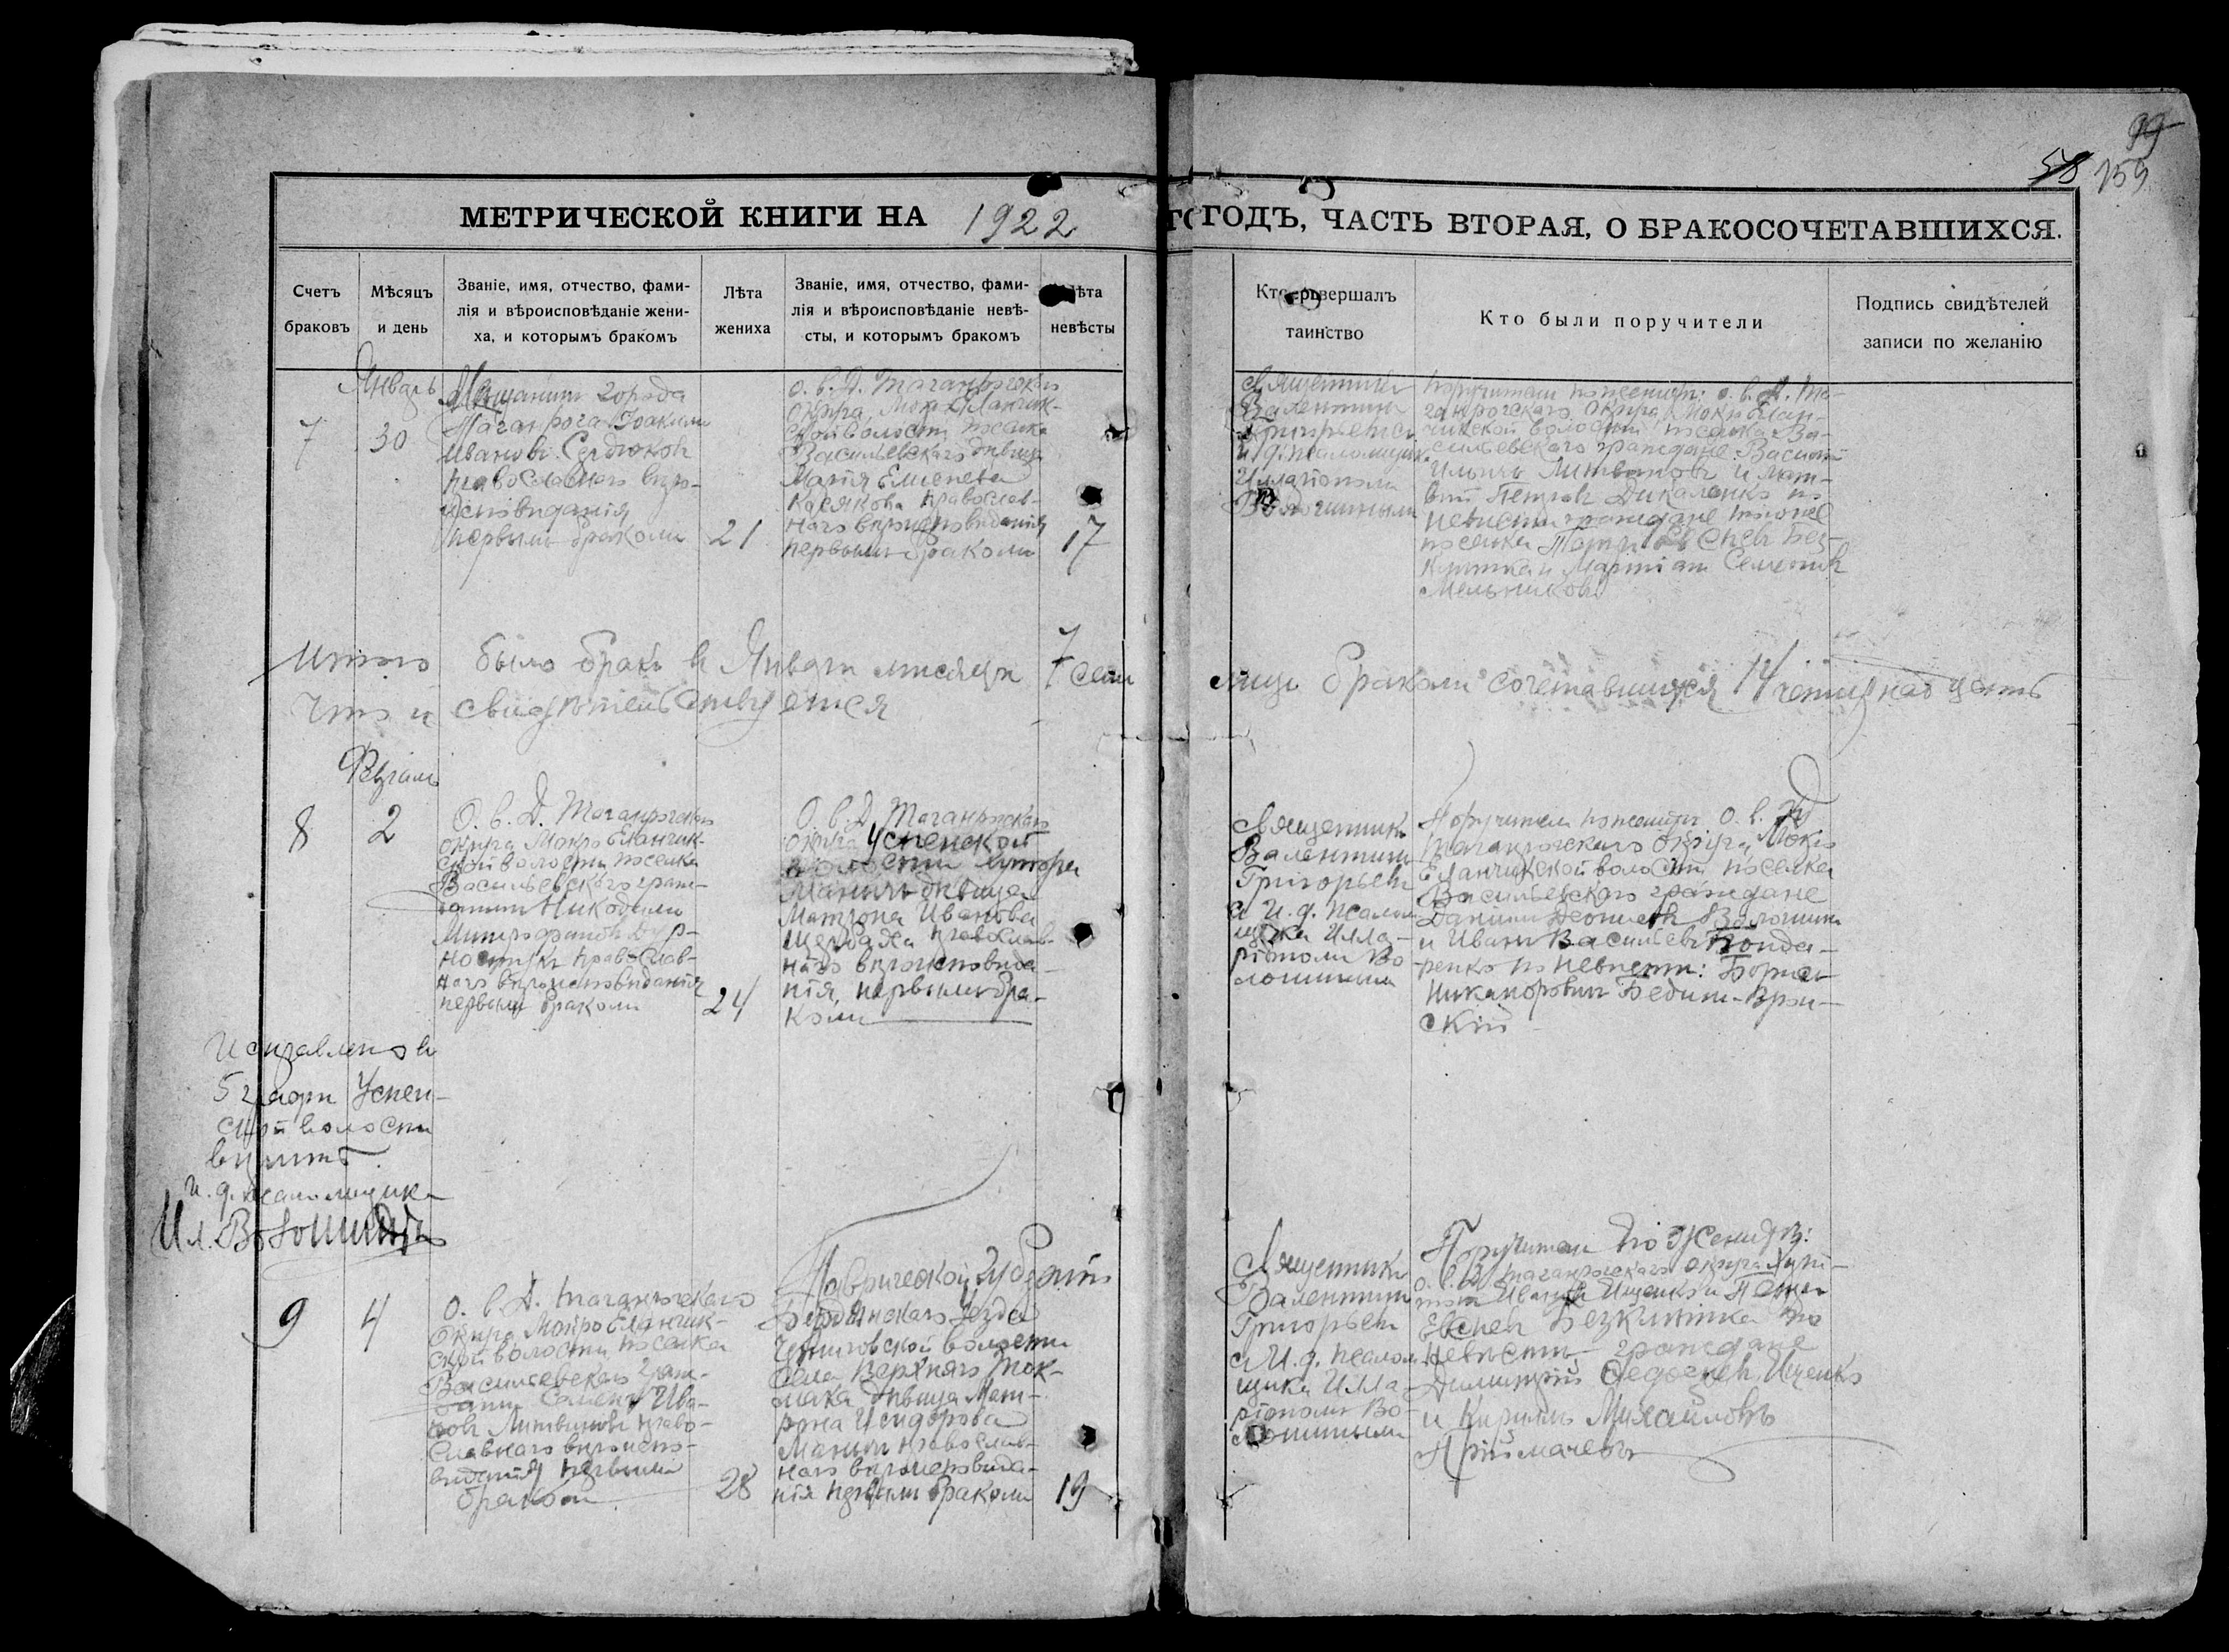 99
58 159
МЕТРИЧЕСКОЙ КНИГИ НА 1922 ГОДЪ, ЧАСТЬ ВТОРАЯ, О БРАКОСОЧЕТАВШИХСЯ.
Счетъ
браковъ
Мѣсяцъ
и день
Званіе, имя, отчество, фами-
лія и вѣроисповѣданіе жени-
ха, и которымъ бракомъ
Лѣта
жениха
Званіе, имя, отчество, фами-
лія и вѣроисповѣданіе невѣ-
сты, и которымъ бракомъ
Лѣта
невѣсты
Кто совершалъ
таинство
Кто были поручители
Подпись свидѣтелей
записи по желанію
Январь
7
30
Мѣщанинъ города
Таганрога Іоакимъ
Ивановъ Сердюковъ
православнаго вѣро-
исповѣданія
первымъ бракомъ
21
О. в. Д. Таганрогскаго
округа, Мокро Еланчик-
ской волости поселка
Васильевскаго дѣвица
Марія Елисеева
Косякова православ-
наго вѣроисповѣданія
первымъ бракомъ
17
Священникъ
Валентинъ
Григорьевъ
и. д. псаломщика
Илларіономъ
Волошинымъ
Поручители по женихѣ: О. в. Д. Та-
ганрогскаго округа, Мокро Елан-
чикской волости поселка Ва-
сильевскаго граждане: Василій
Ильичъ Литвиновъ и Мат-
вій Петровъ Дикаленко по
невѣстѣ граждане того же
поселка Петръ Евсіевъ Без-
клинка и Мартіанъ Семеновъ
Мельниковъ
Итого было бракъ в Январѣ мѣсяцѣ 7 семь
лицъ бракомъ сочетавшихся 14 четырнадцать
Что и свидѣтельствуется
Февраль
8
2
О. в. Д. Таганрогскаго
округа Мокро Еланчик-
ской волости поселка
Васильевскаго граж-
данинъ Никодимъ
Митрофановъ
православ-
наго вѣроисповѣданія
первымъ бракомъ
24
О. в. Д. Таганрогскаго
округа Успенской
волости хутора
дѣвица
Матрона Иванова
Щербака православ-
наго вѣроисповѣда-
нія, первымъ бра-
комъ
Священникъ
Валентинъ
Григорьевъ
и И. д. псалом-
щика Илла-
ріономъ Во-
лошинымъ
Поручители по женихѣ О. в. Д.
Таганрогскаго округа, Мокро
Еланчикской волости поселка
Васильевскаго граждане
Даніилъ Волошинъ
и Иванъ Васильевъ Бонда-
ренко по невѣстѣ: Борисъ
Никаноровичъ
скій
Исправлено в
5 графѣ Успен-
ской волости
вѣрить.
И. д. псаломщика
Ил. Волошинъ
9
4
О. в. Д. Таганрогскаго
округа Мокро Еланчик-
ской волости поселка
Васильевскаго граж-
данинъ Семенъ Ива-
новъ Литвиновъ право-
славнаго вѣроиспо-
вѣданія первымъ
бракомъ
28
Таврической губерніи
Бердянскаго уѣзда
Черниговской волости
села Верхняго Ток-
мака дѣвица Мат-
рона Исидорова
православ-
наго вѣроисповѣда-
нія первымъ бракомъ
19
Священникъ
Валентинъ
Григорьевъ
и И. д. псалом-
щика Илла-
ріономъ Во-
лошинымъ
Поручители по женихѣ:
О. в. Д. Таганрогскаго округа
Ищенко и Петръ
Евсіевъ Безклинка по
невѣстѣ граждане
Димитрій Федоровъ Ищенко
и Кириллъ Михайловъ
Приймачевъ